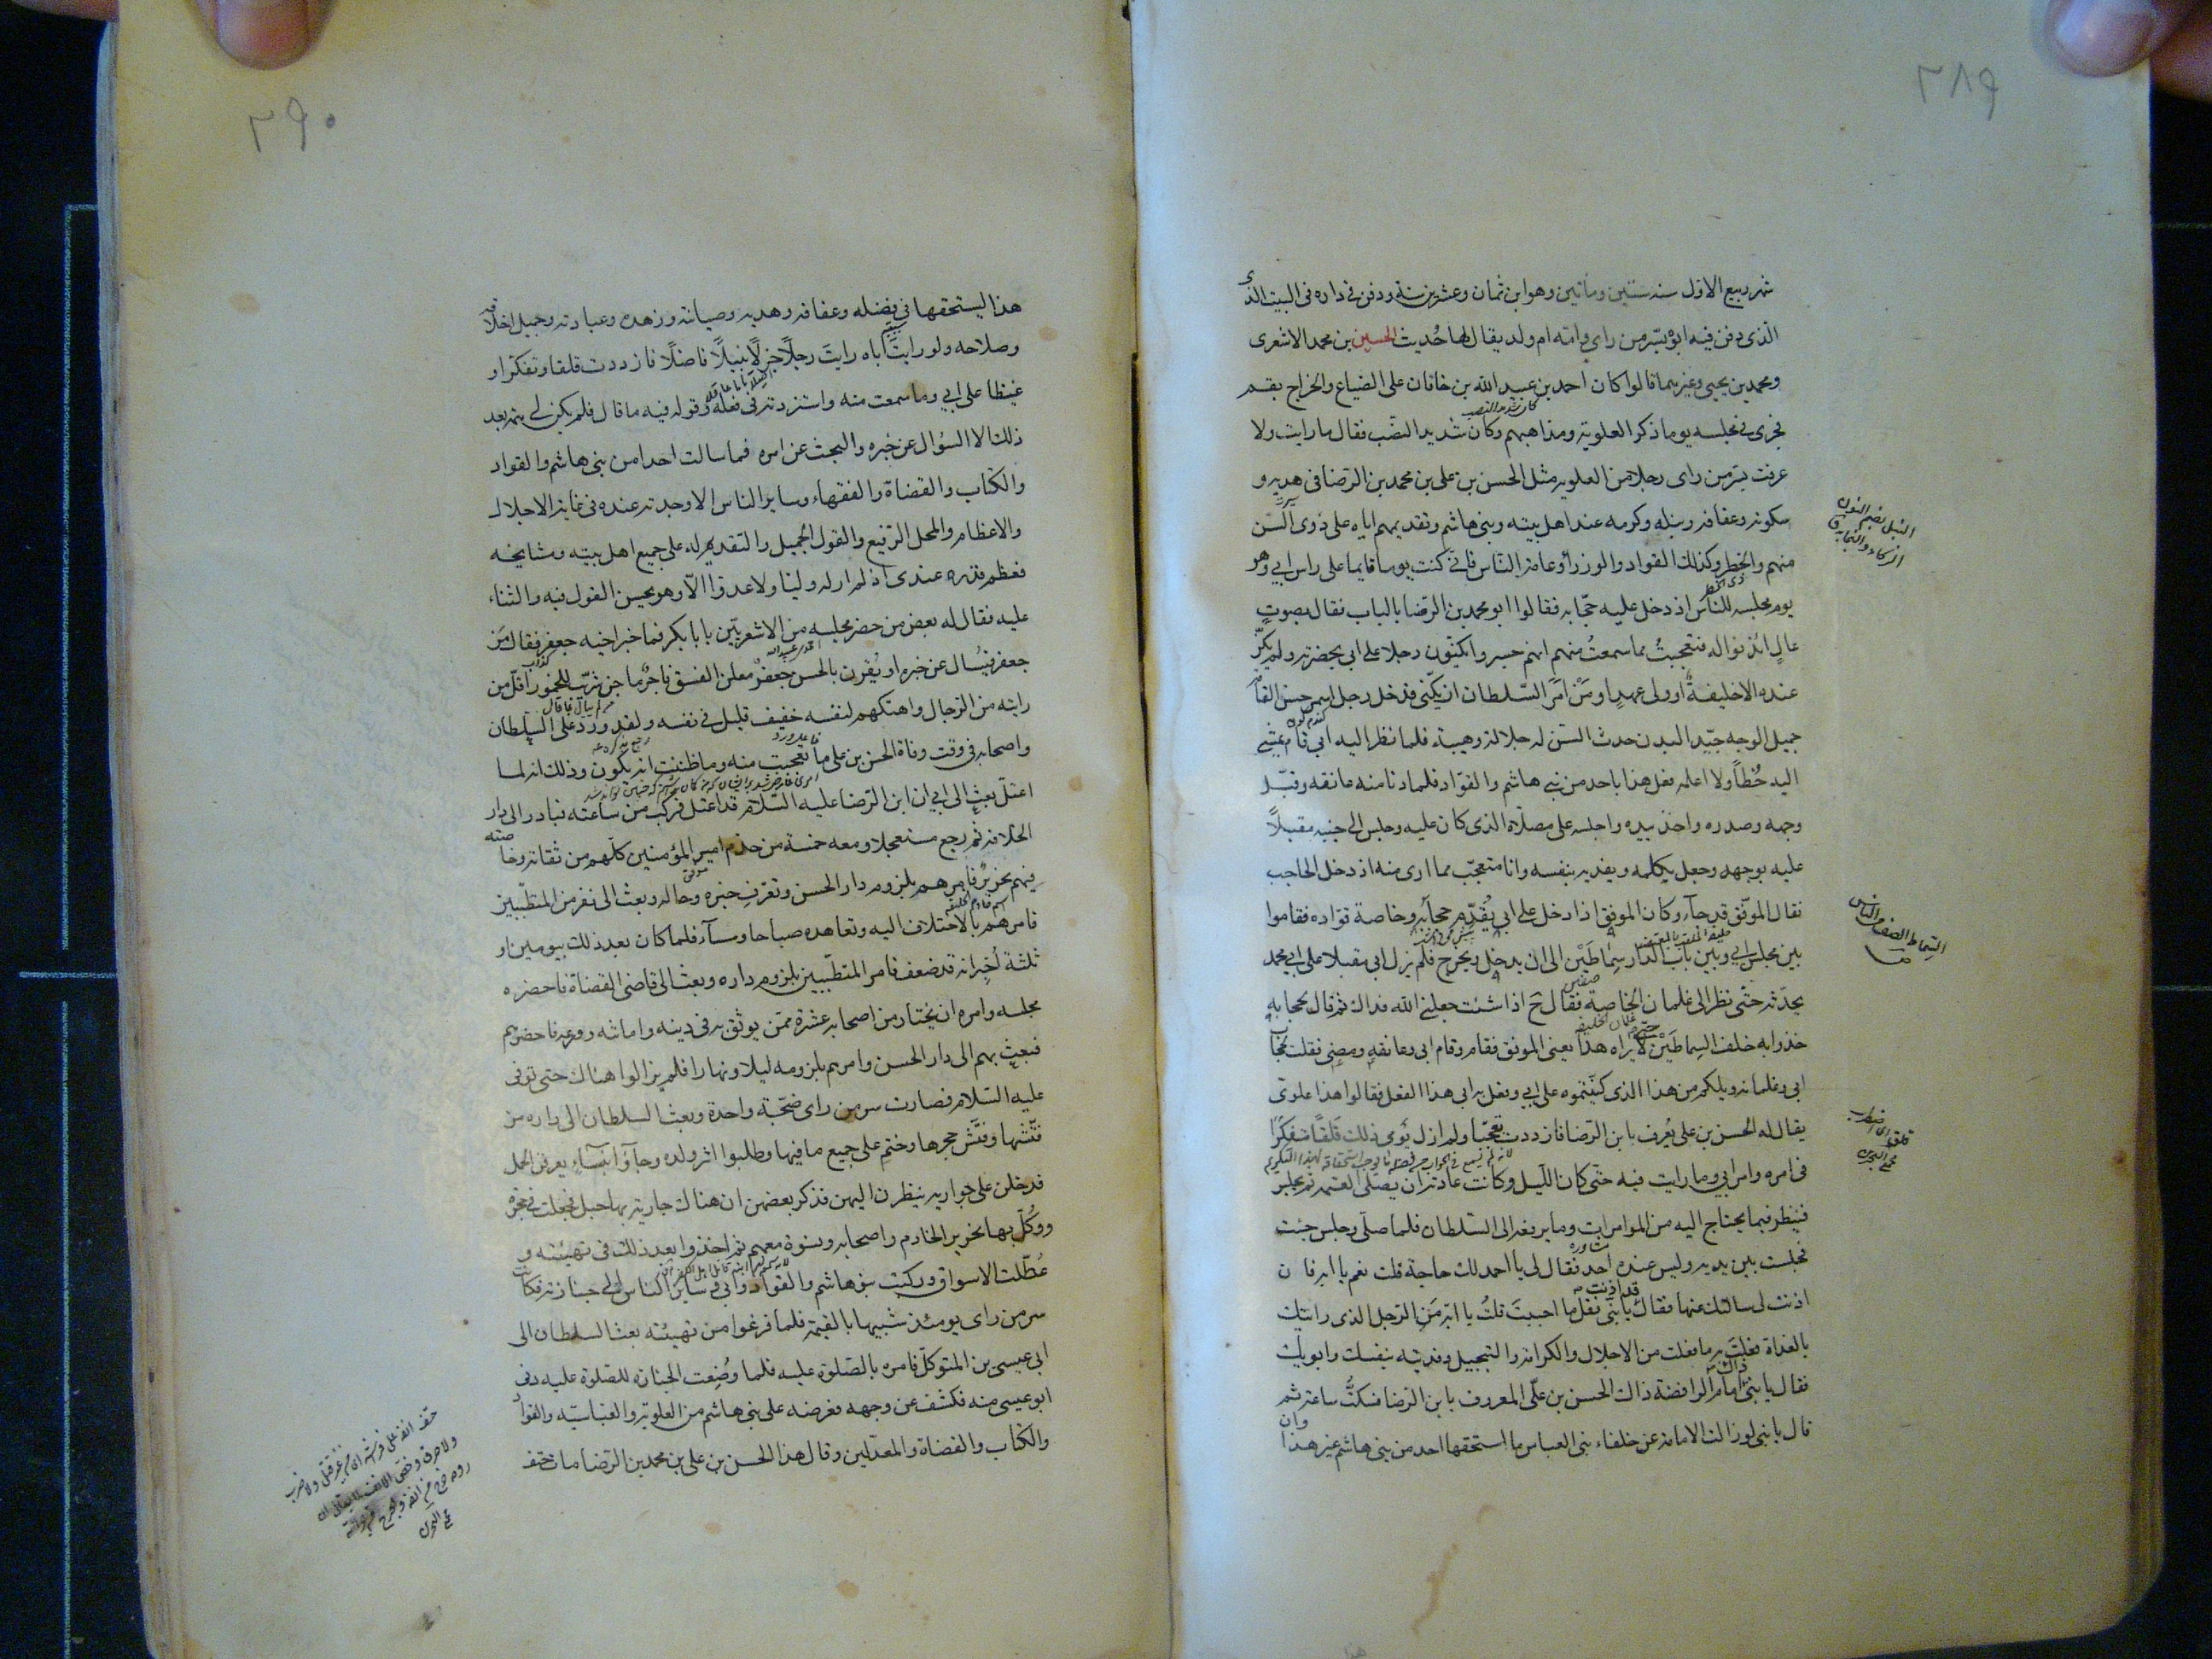 ٣٨٩
شهر ربيع الاول سنة ستين ومأتين وهو ابن ثمان وعشرين سنة ودفن فى داره فى البيت الذى
الّذى دفن فيه ابوه بسّر من راى وامّه ام ولد يقال لها حُديث الحسين بن محمد الاشعرى
ومحمد بن يحيى وغيرهما قالوا كان احمد بن عبيد الله بن خاقان على الضياع والخراج بقم
فجرى فى مجلسه يوما ذكر العلوية ومذاهبهم وكان شديد النصب فقال ما رايت ولا
عرفت بسّر من راى رجلا من العلوية مثل الحسن بن على بن محمد بن الرّضا فى هديه و
سكونه وعفافه ونبله وكرمه عند اهل بيته وبنى هاشم وتقديمهم اياه على ذوى السّن
منهم والخطر وكذلك القواد والوزراء وعامة النّاس فانّى كنت يوما قايما على راس ابى وهو
يوم مجلسه للناس اذ دخل عليه حجّابه فقالوا ابو محمد بن الرّضا بالباب فقال بصوت
عالٍ ائذنوا له فتعجبتُ مما سمعتُ منهم انهم جسروا يكنّون رجلا على ابى بحضرته ولم يكنّ
عنده الا خليفةٌ او ولى عهدٍ او مَنْ امَرَ السّلطان ان يكنّى فدخل رجل اسمر حسن القامة
جميل الوجه جيّد البدن حدث السّن له جلالة وهيبة فلما نظر اليه ابى قام يمشى
اليه خُطاً ولا اعلمه فعل هذا باحد من بنى هاشم والقوّاد فلما دنا منه عانقه وقبّل
وجهه وصدره واخذ بيده واجلسه على مصلّاه الذى كان عليه وجلس الى جنبه مقبلاً
عليه بوجهه وجعل يكلمه ويفديه بنفسه وانا متعجّب مما ارى منه اذ دخل الحاجب
فقال الموفّق قد جآء وكان الموفق اذا دخل على ابى يُقدِّم حجابه وخاصة قواده فقاموا
بين مجلس ابى وبين باب الدار سِماطَيْن الى ان يدخل ويخرج فلم يزل ابى مقبلا على ابى محمد
يحدّثه حتّى نظر الى غلمان الخاصة فقال ح اذا شئت جعلنى الله فداك ثم قال لحجابه
خذوا به خلف السِماطَيْن لا يراه هذا يعنى الموفق فقام وقام ابى وعانقه ومضى فقلت لحجاب
ابى وغلمانه ويلكم من هذا الذى كنّيتموه على ابى وفعل به ابى هذا الفعل فقالوا هذا علوىّ
يقال له الحسن بن على يُعرف بابن الرّضا فازددت تعجّبا ولم ازل يومى ذلك قلقاً متفكرًا
فى امره وامر ابى وما رايت فيه حتّى كان الليل وكانت عادته ان يصلّى العتمة ثم يجلس
فينظر فيما يحتاج اليه من المؤامرات وما يرفعه الى السّلطان فلما صلّى وجلس جئت
فجلست بين يديه وليس عنده احد فقال لى يا احمد لك حاجة قلت نعم يا ابه فان
اذنت لى سالتك عنها فقال يا بنّى فقل ما احببتَ قلتُ يا ابه مَنِ الرّجل الذى رايتك
بالغداة فعلتَ به ما فعلت من الاجلال والكرامة والتبجيل وفديته بنفسك وابويك
فقال يا بنىّ امام الرافضة ذاك الحسن بن علّى المعروف بابن الرّضا فسكتُّ ساعة ثم
قال يا بنى لو زالت الامامة عن خلفاء بنى العباس ما استحقها احد من بنى هاشم غير هذا
كان شديد النصب
ذوى الخطر
قد اذنت
النبل بضم النون
الذكاء والنجابة ق
السِّماط الصف من الناس
قلقا اى اضطراب
مجمع البحرين
٣٩٠
هذا ليستحقها فى فضله وعفافه وهديه وصيانته وزهده وعبادته وجميل اخلاقه
وصلاحه ولو رايتَ اباه رايتَ رجلًا جزلًا نبيلًا فاضلًا فازددت قلقا وتفكّرا و
غيظا على ابى وما سمعت منه واستزدته فى فعله وقوله فيه ما قال فلم يكن لى همة بعد
ذلك الا السّؤال عن خبره والبحث عن امره فما سالت احدا من بنى هاشم والقواد
والكتّاب والقضاة والفقهاء وساير الناس الا وجدته عنده فى غاية الاجلال
والاعظام والمحل الرّفيع والقول الجميل والتقديم له على جميع اهل بيته ومشايخه
فعظم قدره عندى اذ لم ار له وليّا ولا عدوّا الّا وهو يحسن القول فيه والثناء
عليه فقال له بعض من حضر مجلسه من الاشعريّين يا با بكر فما خبر اخيه جعفر فقال مَن
جعفر فيسال عن خبره او يُقرن بالحسن جعفرٌ معلن الفسق فاجرٌ ماجن شرّيب للخمور اقلّ من
رايته من الرّجال واهتكهم لنفسه خفيف قليل فى نفسه ولقد ورد على السلطان
واصحابه فى وقت وفاة الحسن بن على ما تعجبت منه وما ظننت انه يكون وذلك انه لما
اعتلّ بعث الى ابى ان ابن الرّضا عليه السّلام قد اعتل فركب من ساعته فبادر الى دار
الخلافة ثم رجع مستعجلا ومعه خمسة من خدم امير المؤمنين كلّهم من ثقاته وخاصته
فيهم نحريرٌ فامرهم بلزوم دار الحسن وتعرّف خبره وحاله وبعث الى نفر من المتطبّبين
فامرهم بالاختلاف اليه وتعاهده صباحا ومسآء فلما كان بعد ذلك بيومين او
ثلثة اُخبِر انه قد ضعف فامر المتطبّبين بلزوم داره وبعث الى قاضى القضاة فاحضره
مجلسه وامره ان يختار من اصحابه عشرة ممّن يوثق به فى دينه وامانته وورعه فاحضرهم
فبعث بهم الى دار الحسن وامرهم بلزومه ليلا ونهارا فلم يزالوا هناك حتى توفى
عليه السّلام فصارت سر من راى ضجّة واحدة وبعث السلطان الى داره من
فتّشها وفتّش حجرها وختم على جميع ما فيها وطلبوا اثر ولده وجاؤا بنسآء يعرفن الحمل
فدخلن على جواريه ينظرن اليهن فذكر بعضهن ان هناك جارية بها حبل فجعلت فى حجرة
ووُكّل بها نحرير الخادم واصحابه ونسوة معهم ثم اخذوا بعد ذلك فى تهيئته و
عُطّلت الاسواق وركبت بنو هاشم والقواد وابى وساير الناس الى جنازته فكانت
سر من راى يومئذ شبيها بالقيمة فلما فرغوا من تهيئته بعث السلطان الى
ابى عيسى بن المتوكل فامره بالصّلوة عليه فلما وُضِعت الجنازة للصّلوة عليه دنى
ابو عيسى منه فكشف عن وجهه فعرضه على بنى هاشم من العلوية والعباسيّه والقواد
والكتّاب والقضاة والمعدّلين وقال هذا الحسن بن على بن محمد بن الرّضا مات حتف
حتف انفه على فراشه اى من غير قتل ولا ضرب
ولا حرق وخص الانف
روحه تخرج من انفه
مجمع البحرين